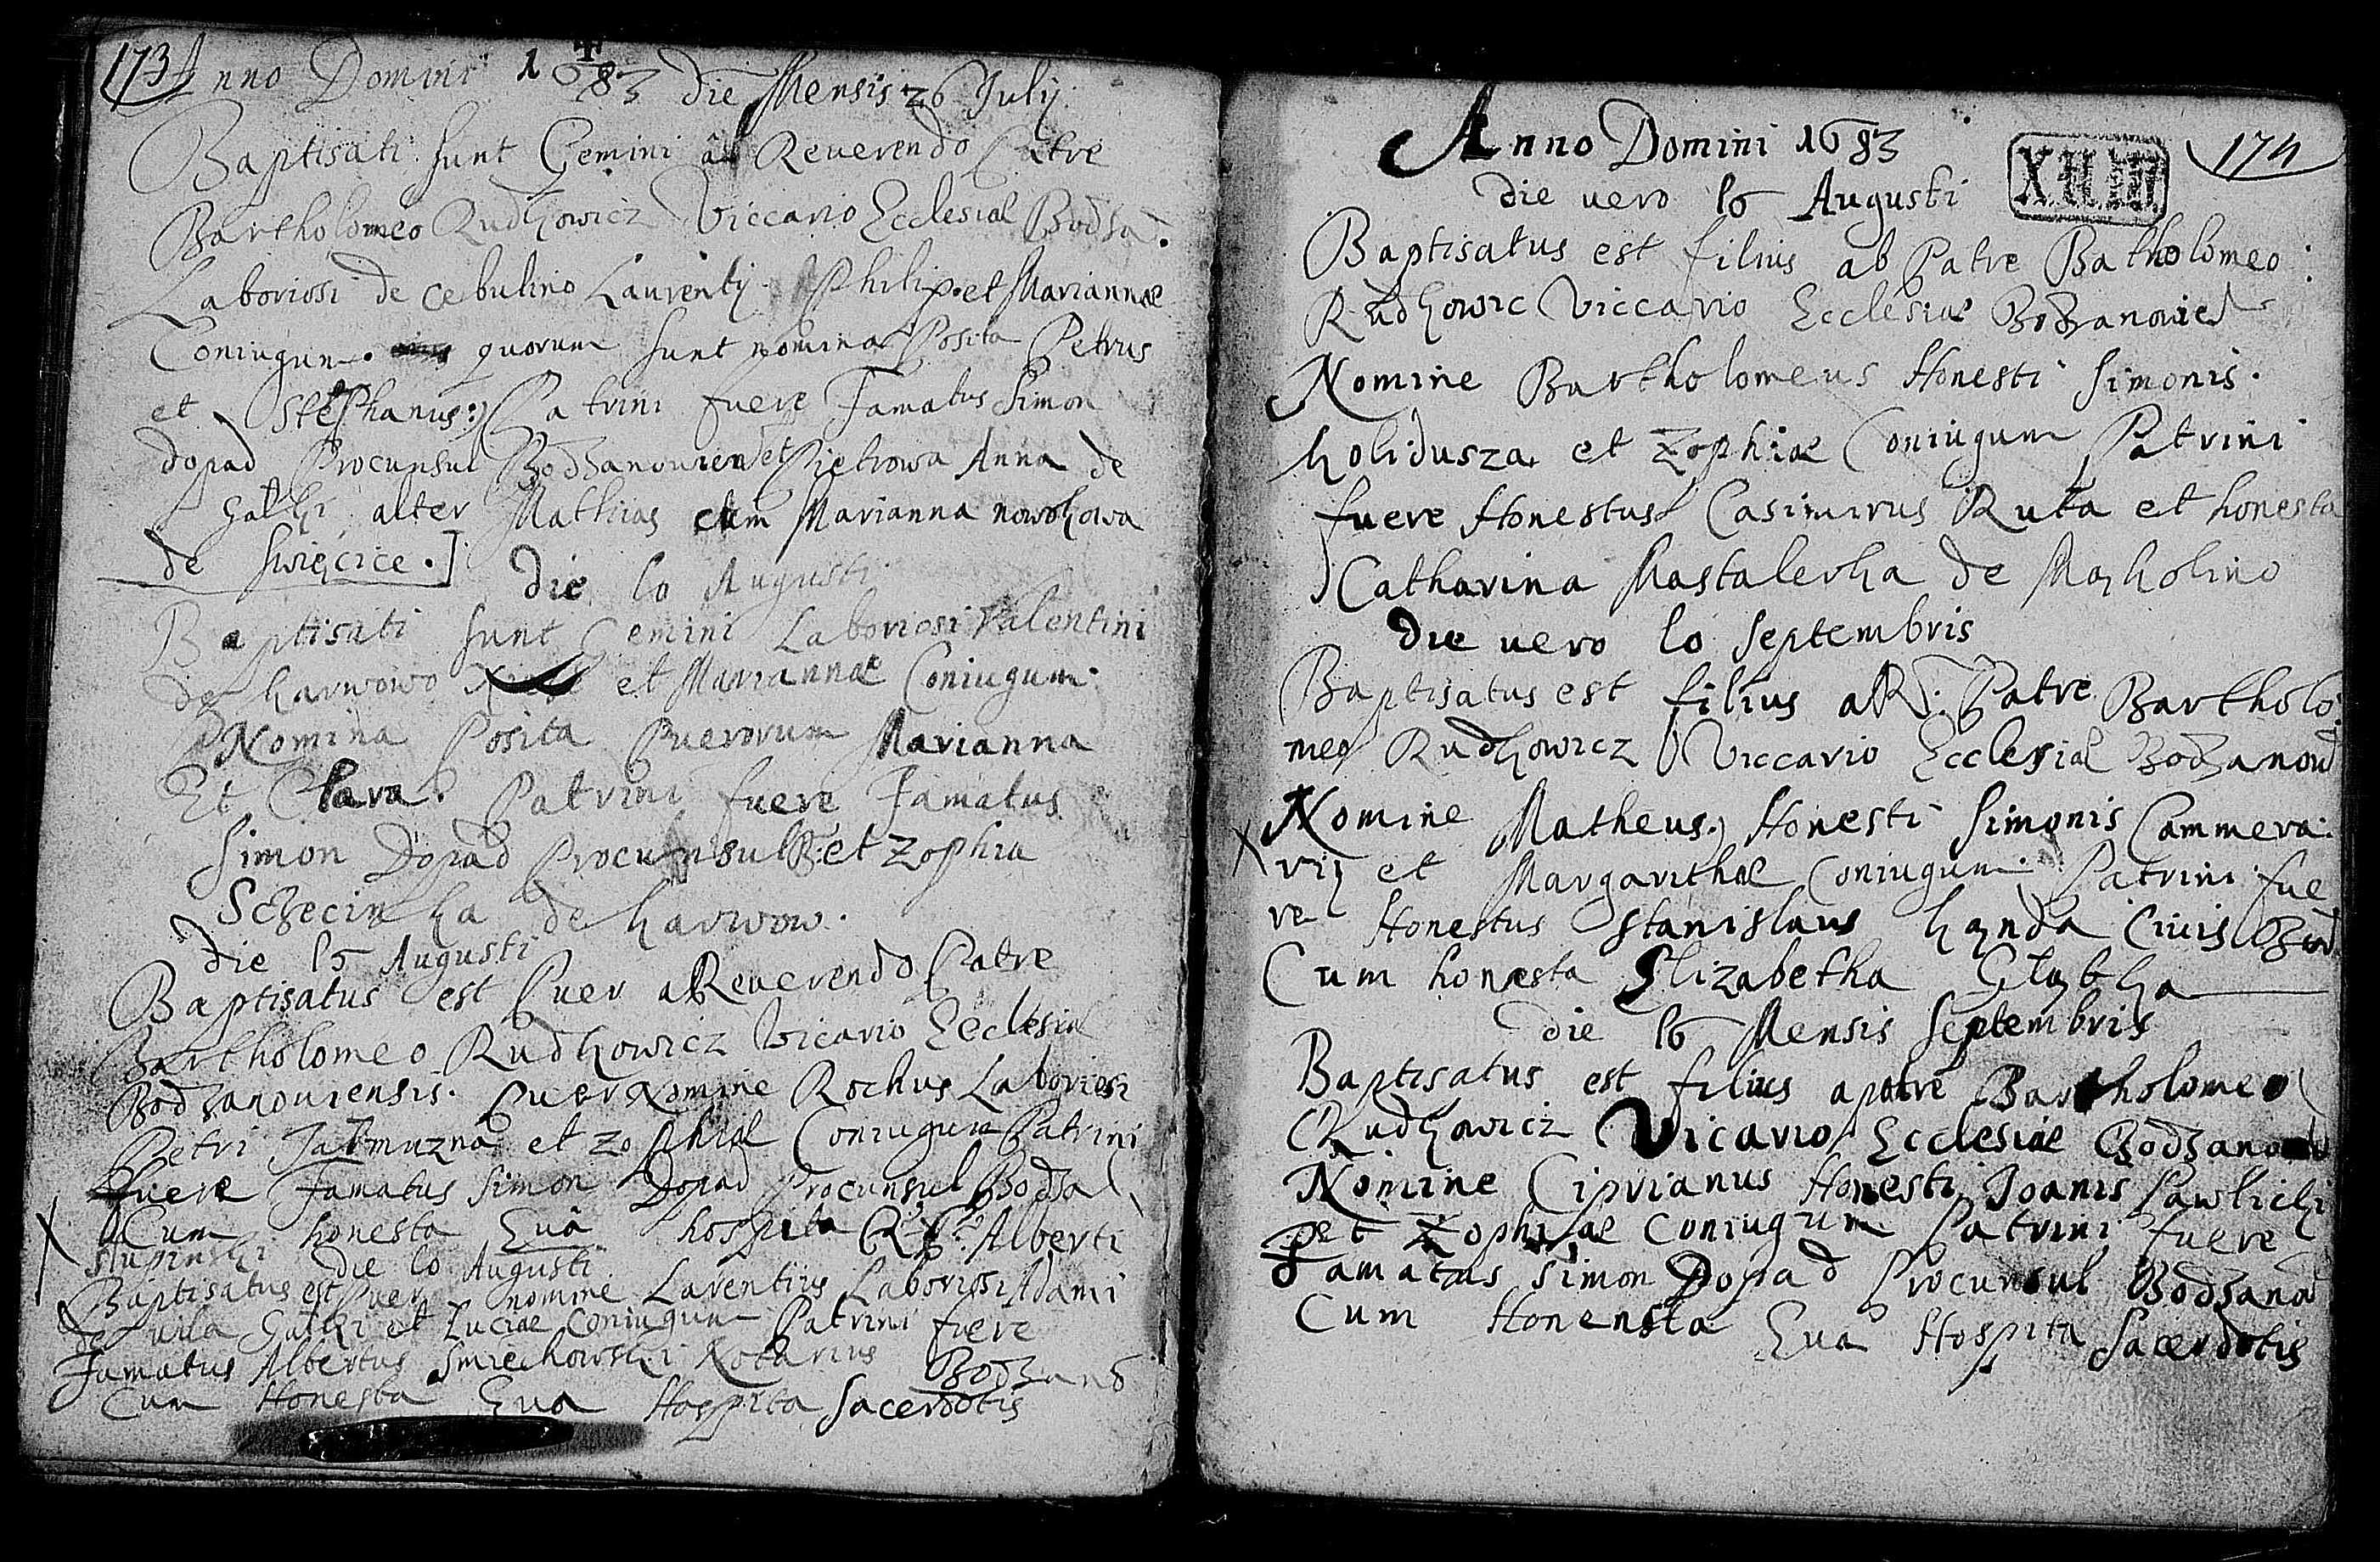 173
Anno Domini 1683 die Mensis 26 Julij
Baptisati sunt Gemini ab Reuerendo Patre
Bartholomeo Rudkowicz Viccario Ecclesiae Bodza.
Laboriosi de Cebulino Laurentij Philip. et Mariannae
Coniugum. quorum sunt nomina Posita Petrus
et Stephanus:) Patrini fuere Famatus Simon
dopad Procunsul Bodzanouien et Pietrowa Anna de
Galki alter Mathias cum Marianna nowokowa
de Swięcice.]
die 10 Augusti
Baptisati sunt Gemini Laboriosi Valentini
de karwowo et Mariannae Coniugum.
Nomina Posita Puerorum Marianna
Et Clara. Patrini fuere Famatus
Simon Dopad Procunsul B: et Zophia
Szczecinka de karwow.
die 15 Augusti
Baptisatus est Puer a Reuerendo Patre
Bartholomeo Rudkowicz Vicario Ecclesiae
Bodzanouiensis. Puer Nomine Rochus Laboriosi
Petri Jałmuzna et Zophiae Coniugum Patrini
fuere Famatus Simon Dopad Procunsul Bodza
Cum honesta Euâ hospita Alberti
Slupinski die 10 Augusti
Baptisatus est Puer nomine Laurentius Laboriosi Adami
de uila Galki et Luciae Coniugum Patrini fuere
Famatus Albertus Smiechowski Notarius Bodzano
Cum Honesta Eua Hospita Sacerdotis
174
Anno Domini 1683
die uero 16 Augusti
Baptisatus est filius ab Patre Batholomeo
Rudkowic Viccario Ecclesiae Bodzanowie
Nomine Bartholomeus Honesti Simonis.
kolidusza et Zophiae Coniugum Patrini
fuere Honestus Casimirus Ruta et honesta
Catharina Mastalerka de Mąkolino
die uero 10 Septembris
Baptisatus est filius a R: Patre Bartholo:
meo Rudkowicz Viccario Ecclesiae Bodzanow
Nomine Matheus:) Honesti Simonis Cammera:
rij et Margarithae Coniugum. Patrini fue
re Honestus Stanislaus kąnda Ciuis Bod
Cum honesta Elizabetha Głąbka
die 16 Mensis Septembris
Baptisatus est filius a patre Bartholomeo
Rudkowicz Vicario Ecclesiae Bodzano
Nomine Ciprianus Honesti Joanis Pawlicki
et Zophiae Coniugum Patrini fuere
Famatus Simon Dopad Procunsul Bodzano
Cum Honensta Eua Hospita Sacerdotis